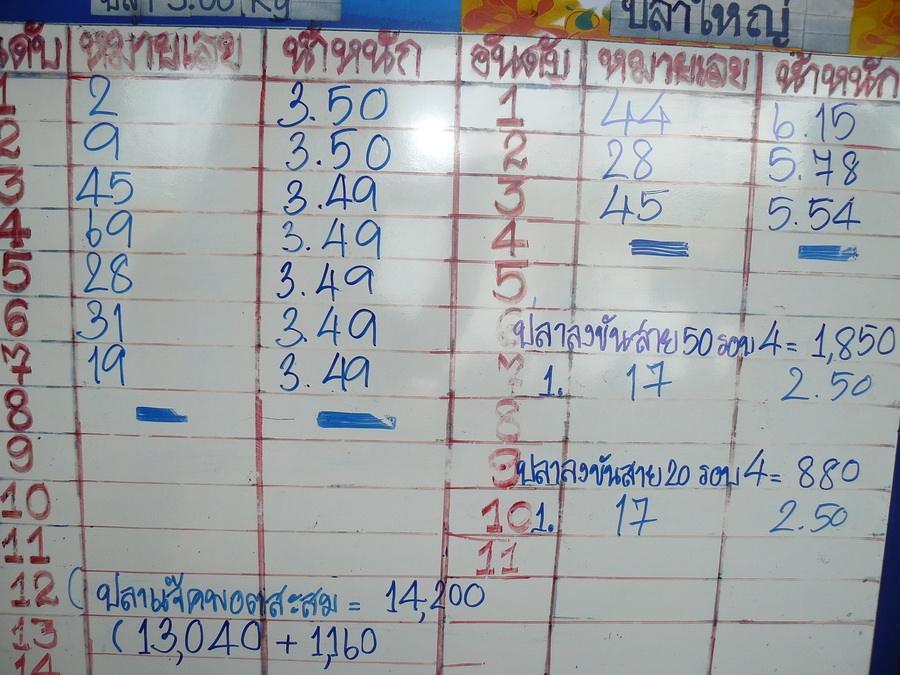 ปลา 3.00 Kg
ปลาใหญ่
อันดับ หมายเลข น้ำหนัก
1 2 3.50
2 9 3.50
3 45 3.49
4 69 3.49
5 28 3.49
6 31 3.49
7 19 3.49
8
9
10
11
12 (ปลาแจ๊คพอตสะสม = 14,200
13 (13,040 + 1,160
14
อันดับ หมายเลข น้ำหนัก
1 44 6.15
2 28 5.78
3 45 5.54
4
5
6 ปลาลงขันสาย 50 รอบ 4 = 1,850
7 1. 17 2.50
8
9 ปลาลงขันสาย 20 รอบ 4 = 880
10 1. 17 2.50
11